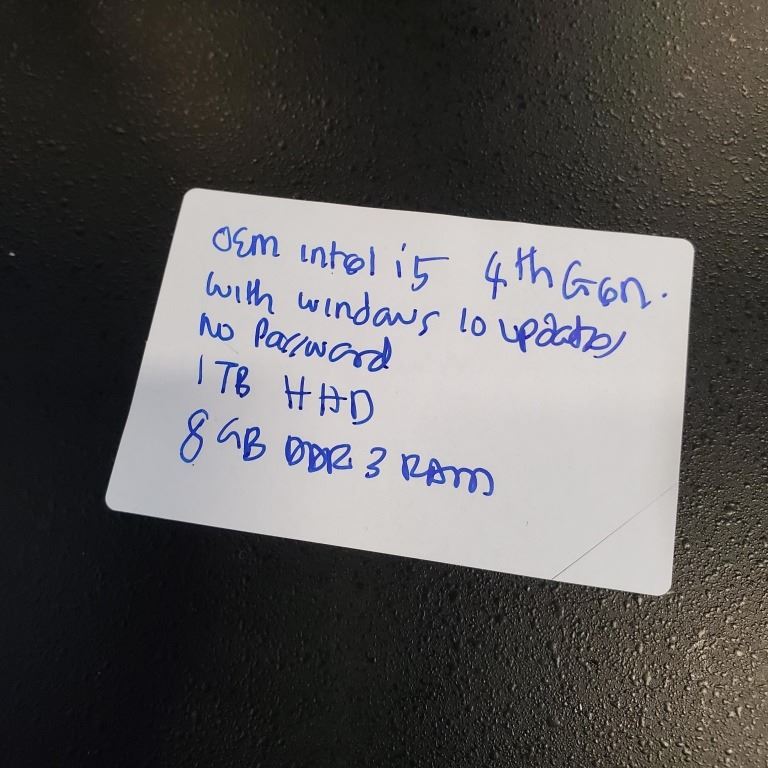 OEM intel i5 4th Gen.
with windows 10 updates
No Password
1TB HHD
8 GB DDR3 RAM